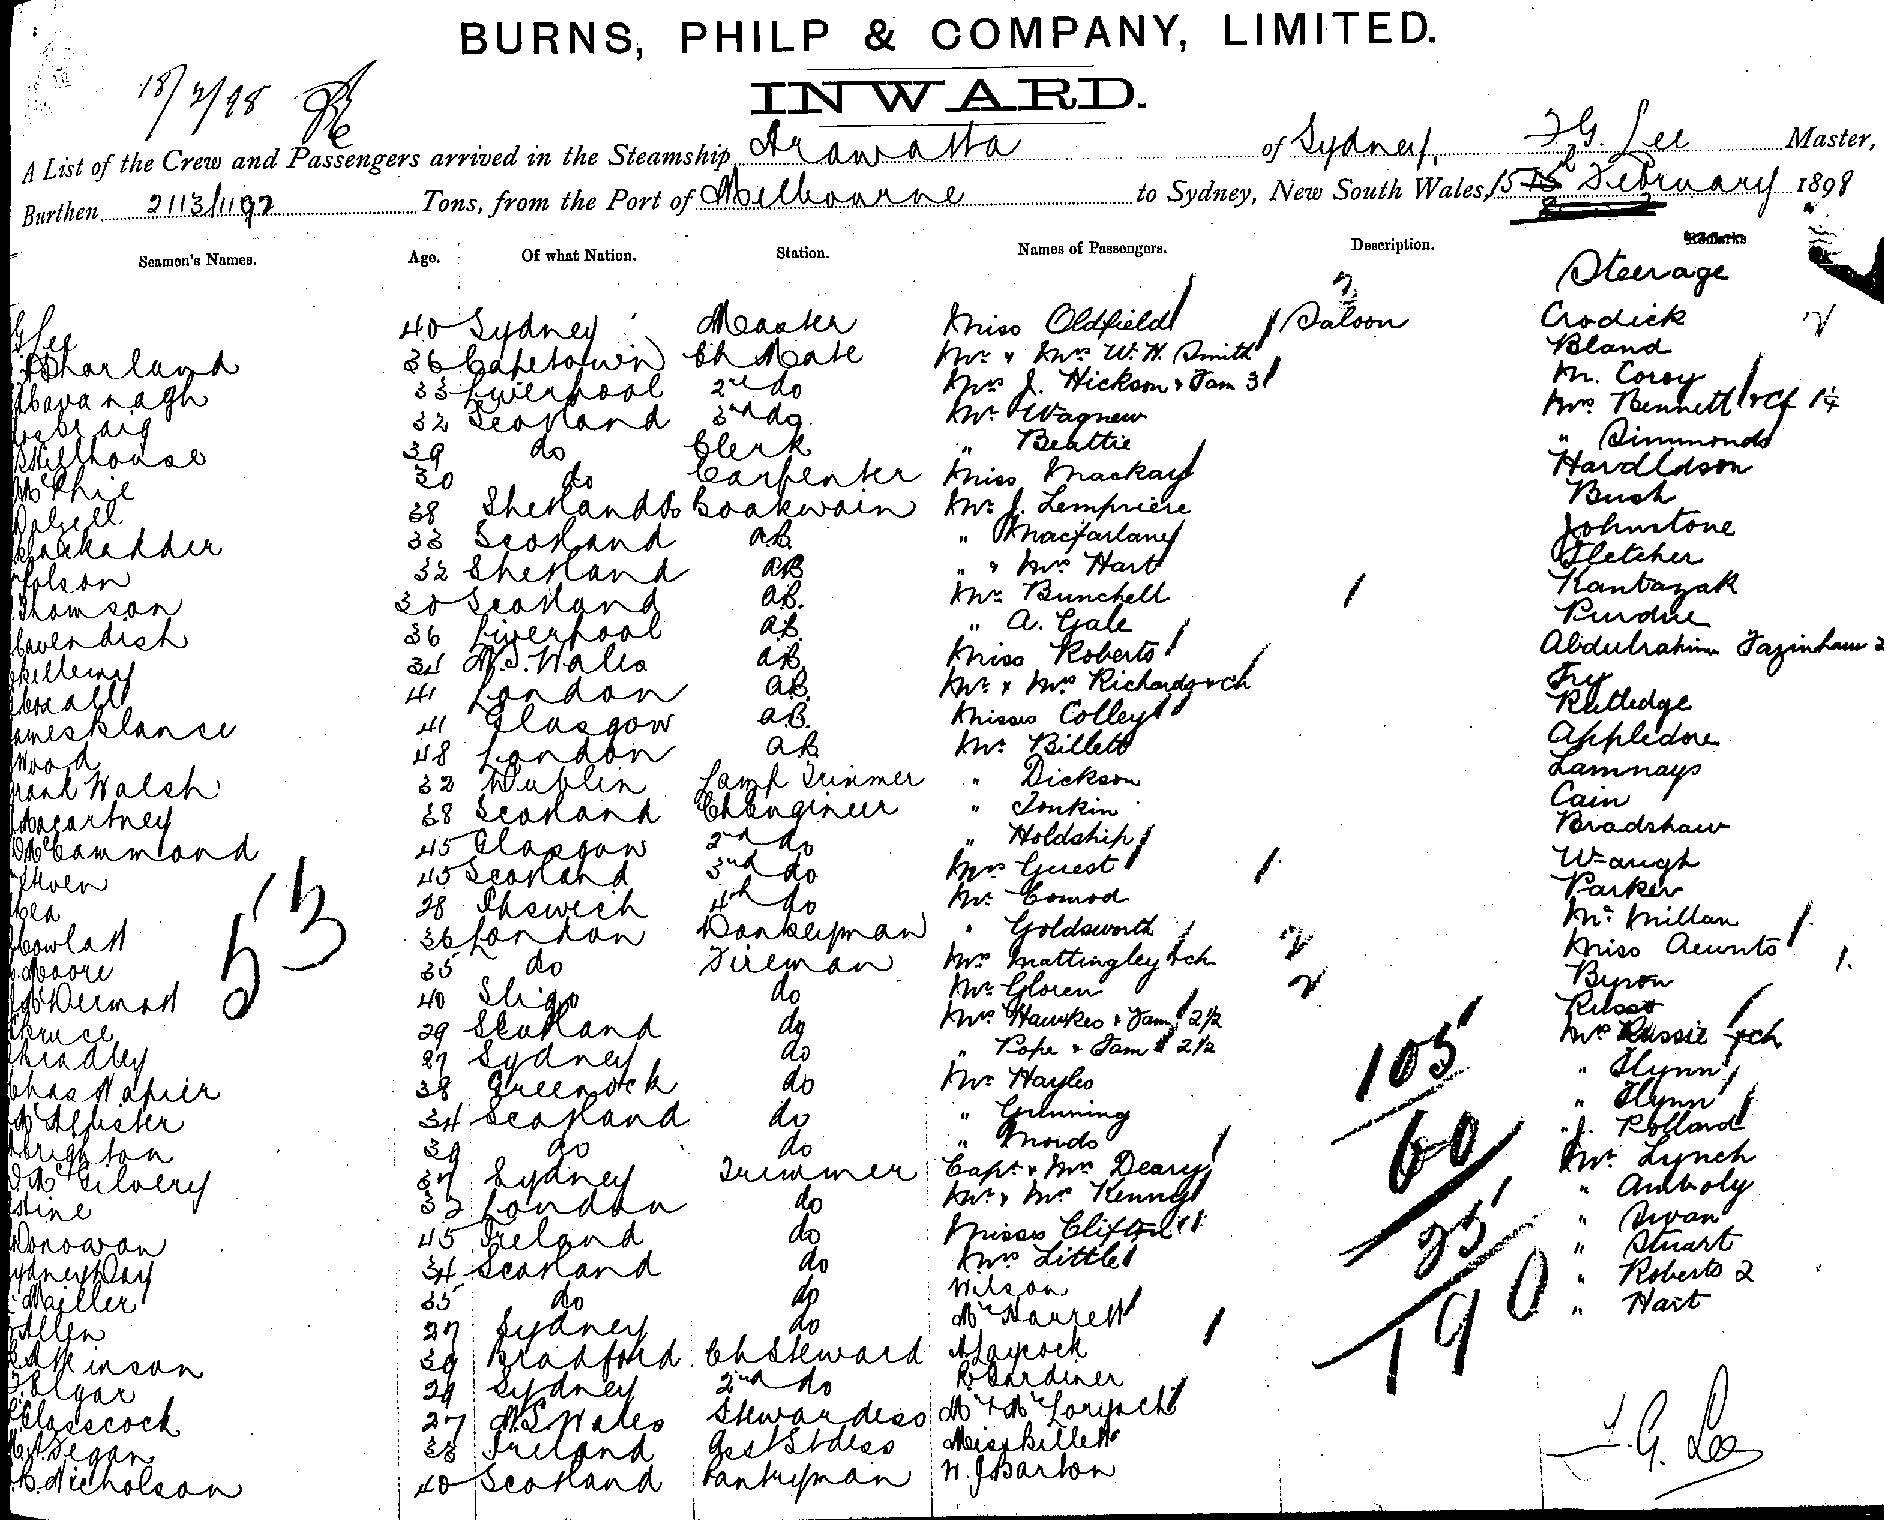 BURNS, PHILP & COMPANY, LIMITED.
INWARD.
18/2/98
A List of the Crew and Passengers arrived in the Steamship Arawatta of Sydney, F G. Lee Master,
Burthen 2113/1192 Tons, from the Port of Melbourne to Sydney, New South Wales, 15 February 1898
Seamen's Names. Age. Of what Nation. Station. Names of Passengers. Description. Remarks
Steerage
G Lee 40 Sydney Master Miss Oldfield Saloon Crodick
Sharland 36 Capetown Ch Mate Mr & Mrs W. H. Smith Bland
Cavanagh 33 Liverpool 2nd do Mrs J. Hickson & Fam 3 M. Coroy
Craig 32 Scotland 3rd do Mr Wagnew Mrs Bennett & Cf 1¼
Millhouse 39 do Clerk " Beattie " Simmonds
McPhie 30 do Carpenter Miss Mackay Hardldson
Dalzell 38 Shetlands Boatswain Mr J. Lempriere Bush
Blackadder 33 Scotland AB " Macfarlane Johnstone
32 Shetland AB " & Mrs Hart Fletcher
Thomson 30 Scotland AB. Mr Bunchell Kantazak
Cavendish 36 Liverpool AB. " A. Gale Purdue
Skellemy 34 N.S. Wales AB Miss Roberts Abdulrahim Fazinhaw 2
Boxall 41 London AB. Mr & Mrs Richards & ch Fry
James Klance 41 Glasgow AB. Misses Colley Rutledge
Wood 48 London AB Mr Billett Appledore
Frank Walsh 32 Dublin Lamp Trimmer " Dickson Lamnays
Macartney 38 Scotland Ch Engineer " Tonkin Cain
McCammond 45 Glasgow 2nd do " Holdship Bradshaw
45 Scotland 3rd do Mrs Guest Waugh
Rea 28 Ipswich 4th do Mr Comod Parker
Cowlatt 36 London Donkeyman " Goldsworth Mc Millan
Moore 35 do Fireman Mrs Mattingley & ch 2 Miss Aewnts
McDermott 40 Sligo do Mr Gloren 2 Byron
Bruce 29 Scotland do Mrs Hawkes & Fam 2½ Russo
Bradley 27 Sydney do " Pope & Fam 2½ Mrs Russie & ch
Chas Napier 38 Greenock do Mr Hayles " Flynn
McAllister 34 Scotland do " Grinning " Flynn
Brighton 39 do do " Mords " J. Pollard
McGilvery 37 Sydney Trimmer Capt & Mrs Deary Mr Lynch
Hine 32 London do Mr & Mrs Kenny " Amboly
Donowan 45 Ireland do Misses Clifton " Swan
Sydney Day 34 Scotland do Mrs Little " Stuart
Miller 35 do do Wilson " Roberts 2
Allen 27 Sydney do McHarrett " Hart
Atkinson 39 Bradford Ch Steward A Laycock
Elgar 29 Sydney 2nd do R Gardiner
Glasscock 27 N.S. Wales Stewardess
Degan 33 Ireland Asst Stdess Miss Billett
B. Nicholson 40 Scotland Pantryman W. J Barton
53
105
60
25
190
F. G. Lee